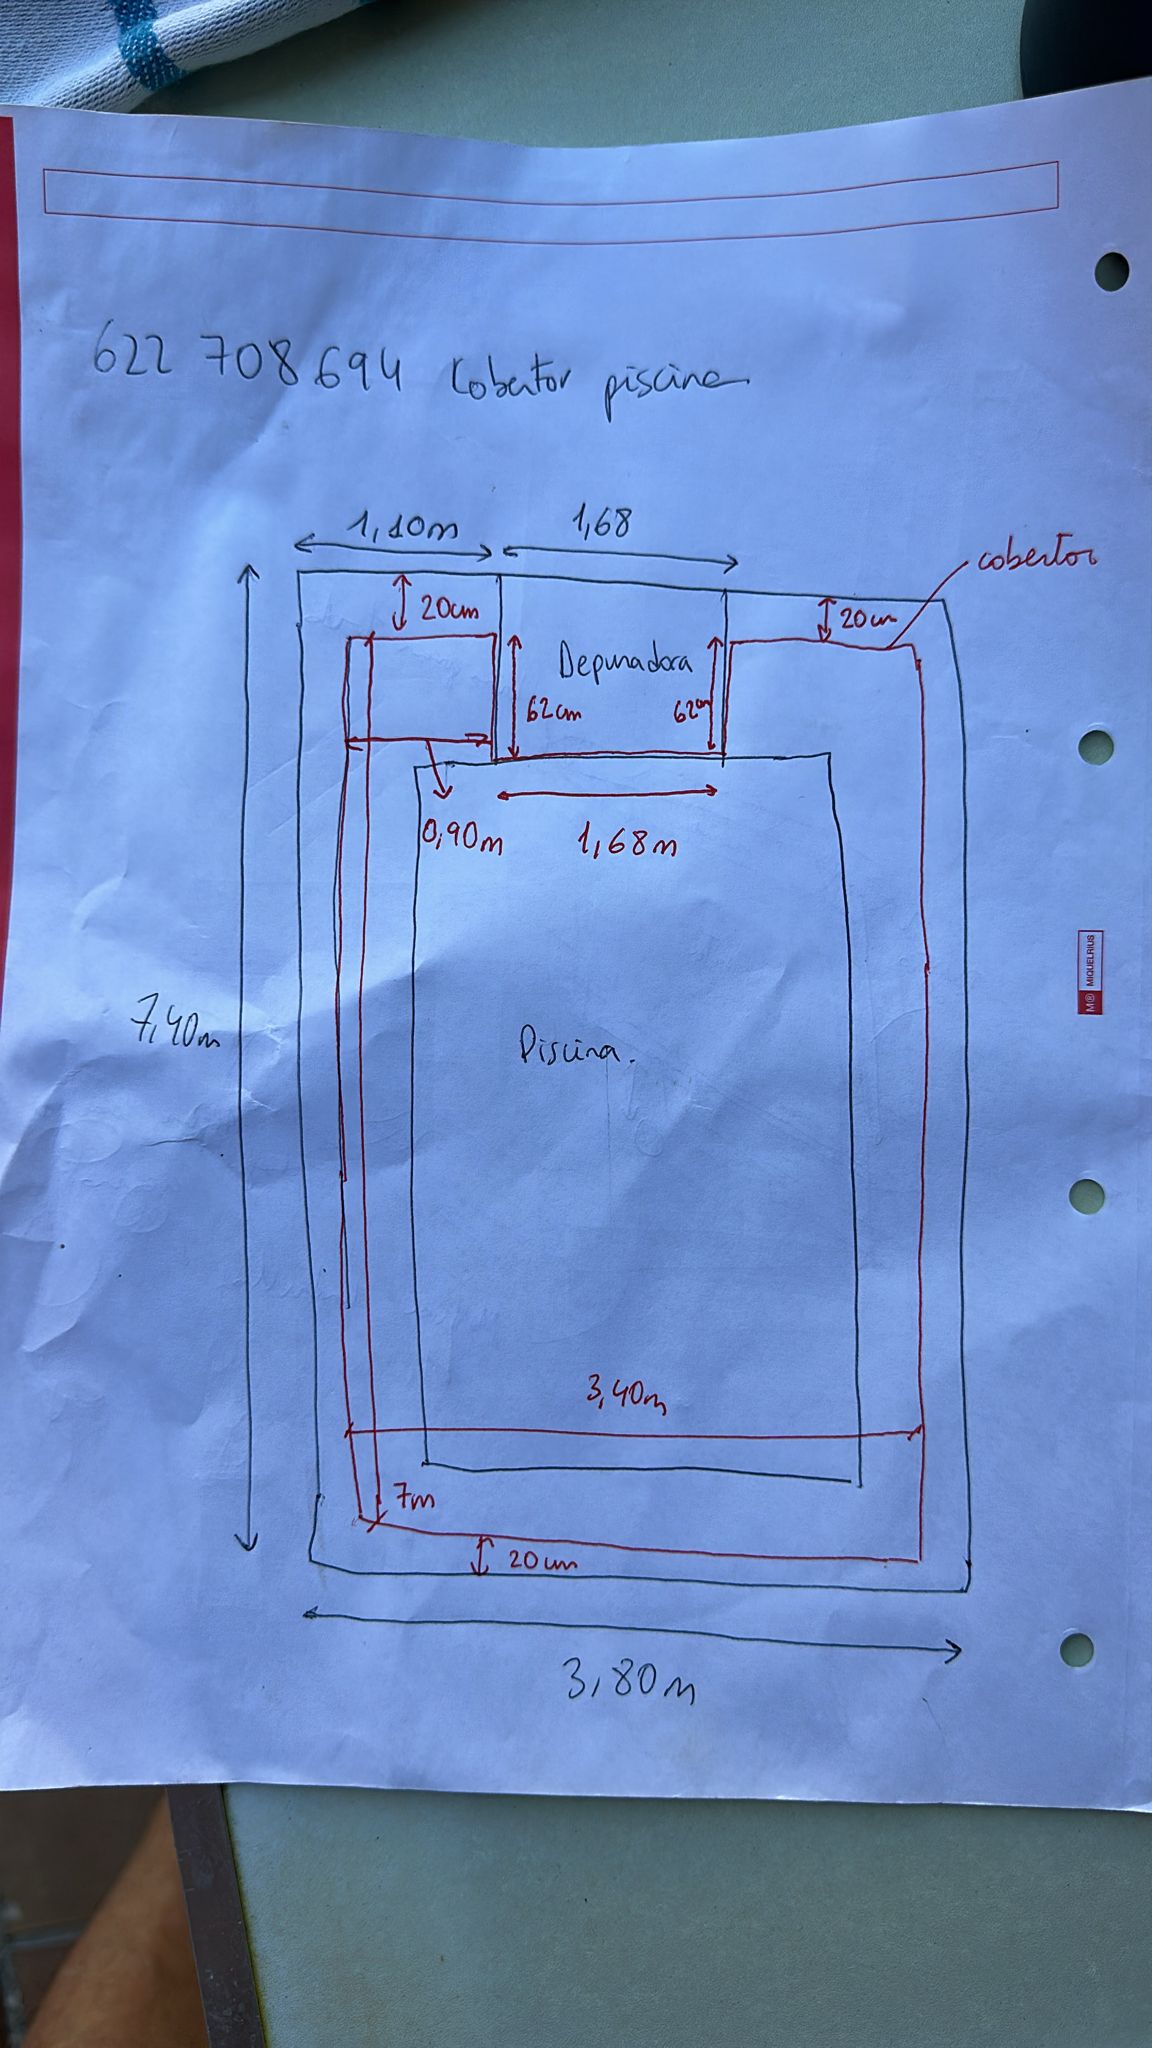 622 708694 Cobertor piscina
1,10m
1,68
cobertor
20cm
20cm
Depuradora
62cm
62cm
0,90m
1,68m
7,40m
Piscina.
M® MIQUELRIUS
3,40m
7m
20cm
3,80m